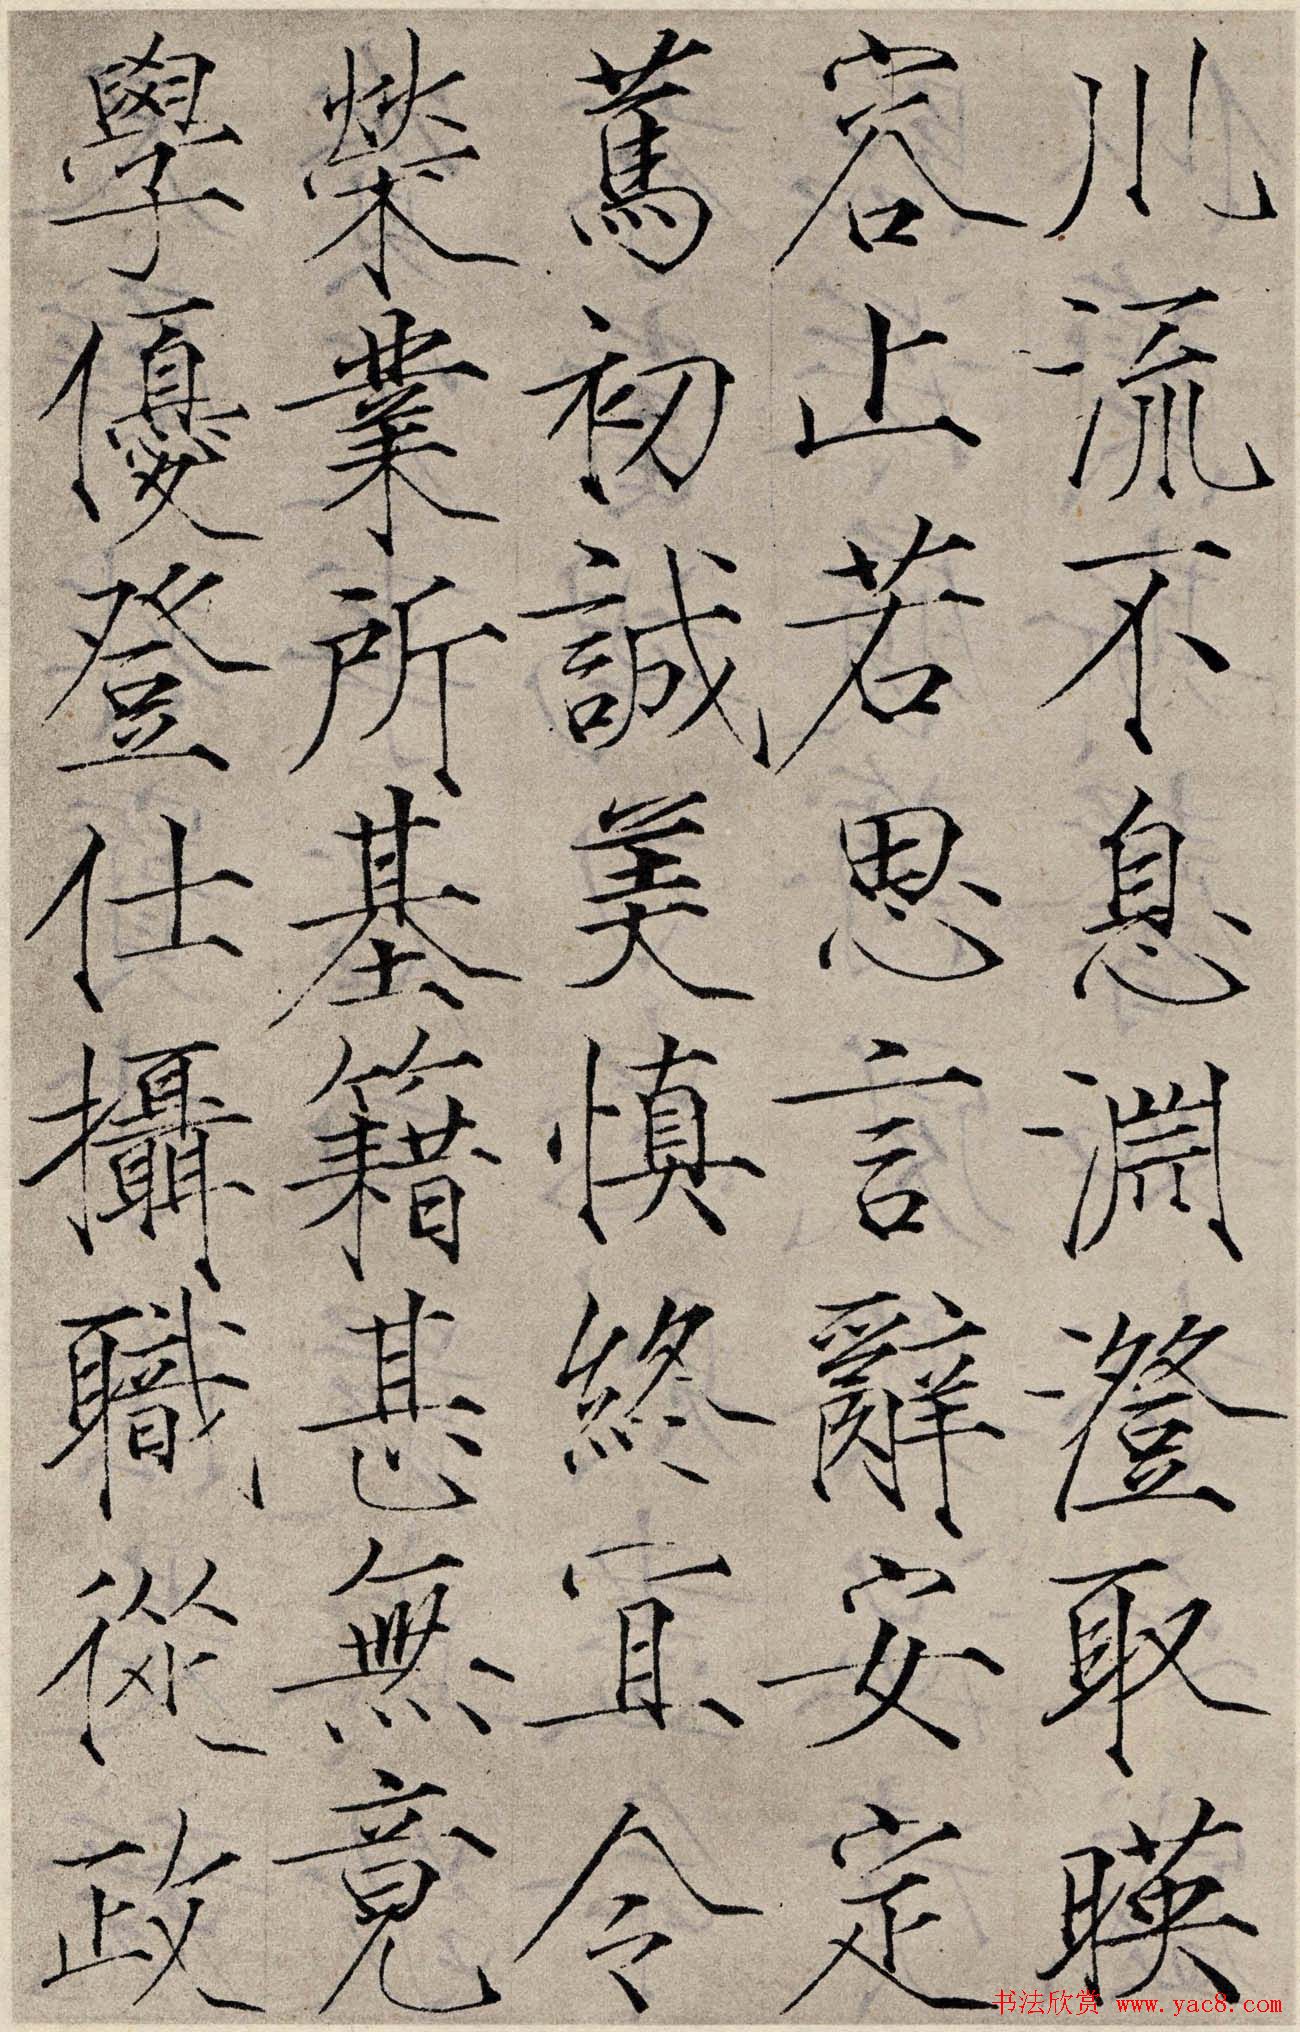 川流不息淵澄取暎
容止若思言辭安定
篤初誠美慎終宜令
榮業所基籍甚無竟
學優登仕攝職從政
书法欣赏 www.yac8.com